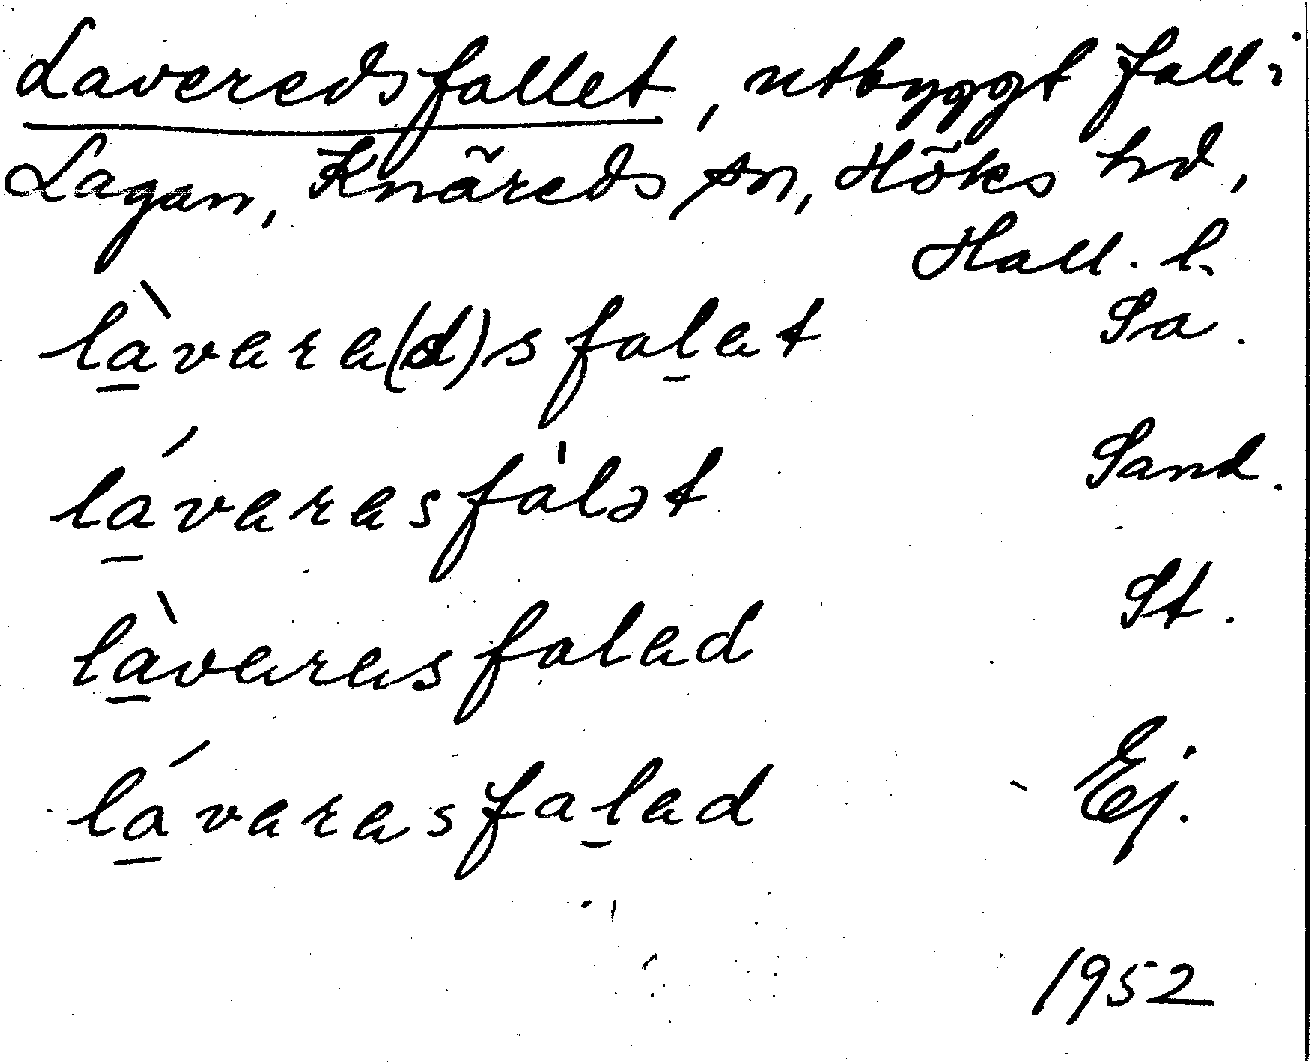 Laveredsfallet, utbyggt fall i
Lagan, Knäreds sn, Höks hd,
Hall. l.
là̱vara(d)sfaḻat Sa.
lá̱varasfàlət Sand.
là̱varasfalad St.
lá̱varasfaḻad Ej.
1952